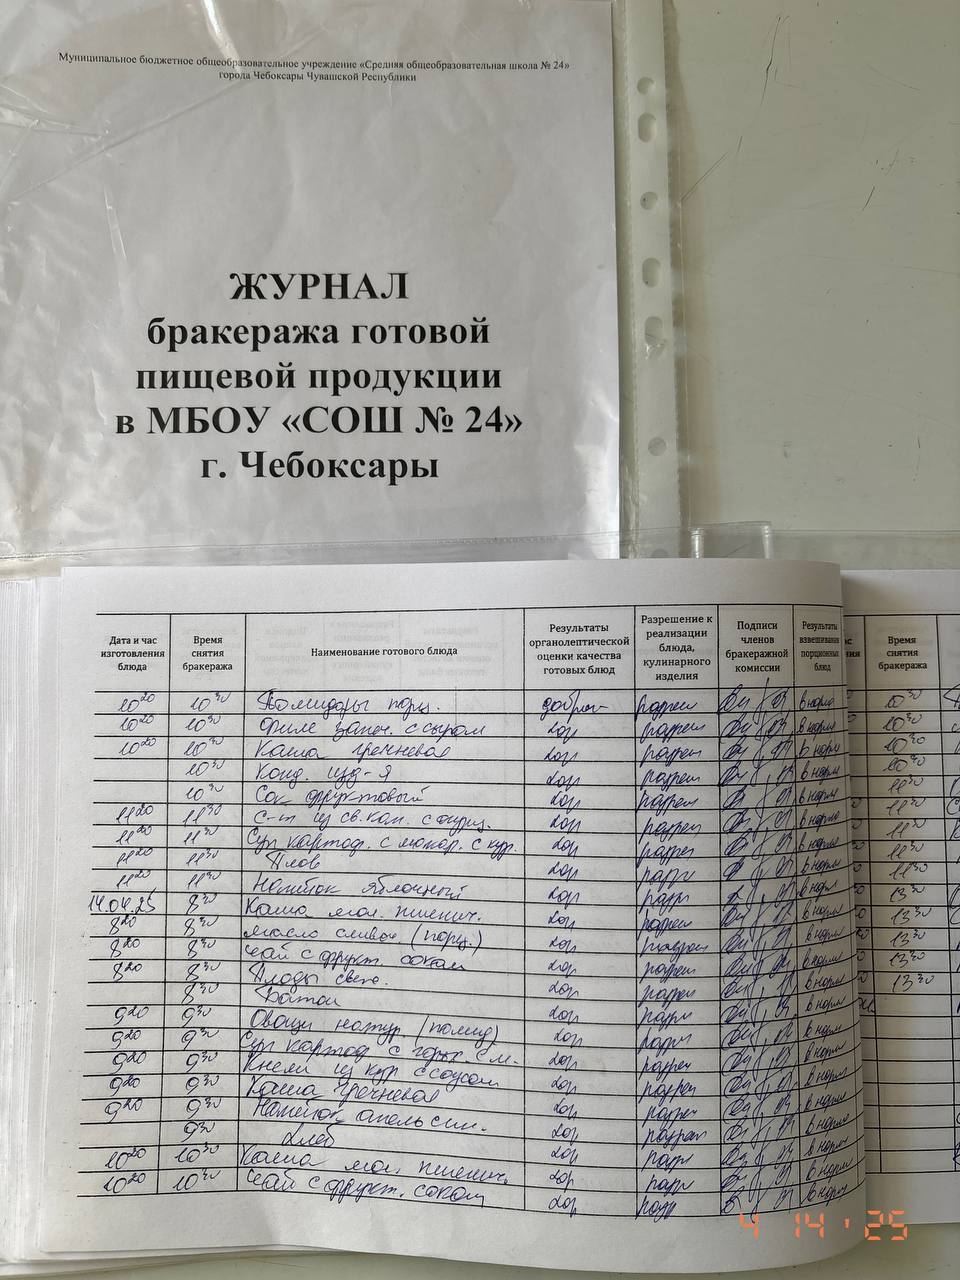 Муниципальное бюджетное общеобразовательное учреждение «Средняя общеобразовательная школа № 24»
города Чебоксары Чувашской Республики
ЖУРНАЛ
бракеража готовой
пищевой продукции
в МБОУ «СОШ № 24»
г. Чебоксары
Дата и час изготовления блюда Время снятия бракеража Наименование готового блюда Результаты органолептической оценки качества готовых блюд Разрешение к реализации блюда, кулинарного изделия Подписи членов бракеражной комиссии Результаты взвешивания порционных блюд Время снятия бракеража
10 20 10 30 Помидоры порц. разреш в норм 10 30
10 20 10 30 Филе запеч. с сыром хор разреш в норм 10 30
10 20 10 30 Каша гречневая хор разреш в норм 10 30
10 30 Конд. изд-я хор разреш в норм 10 30
10 30 Сок фруктовый хор разреш в норм 11 30
11 20 11 30 с-т из св. кап. с огурц. хор разреш в норм 11 30
11 20 11 30 Суп картоф. с макар. с кур. хор разреш в норм 11 30
11 20 11 30 Плов хор разр в норм 11 30
11 20 11 30 Напиток яблочный хор разр в норм 11 30
14.04.25 8 30 Каша мол. пшенич. хор разреш в норм 13 30
8 20 8 30 масло сливоч (порц.) хор разреш в норм 13 30
8 20 8 30 чай с фрукт. соком хор разреш в норм 13 30
8 20 8 30 Плоды свеж. хор разреш в норм 13 30
8 30 Батон хор разреш в норм 13 30
9 20 9 30 Овощи натур (помид) хор разр в норм
9 20 9 30 Суп картоф с горох с м. хор разр в норм
9 20 9 30 Кнели из кур с соусом хор разреш в норм
9 20 9 30 Каша гречневая хор разреш в норм
9 20 9 30 Напиток апельсин. хор разреш в норм
9 30 хлеб хор разреш в норм
10 20 10 30 Каша мол. пшенич. хор разр в норм
10 20 10 30 чай с фрукт. соком хор разр в норм
4 14 '25